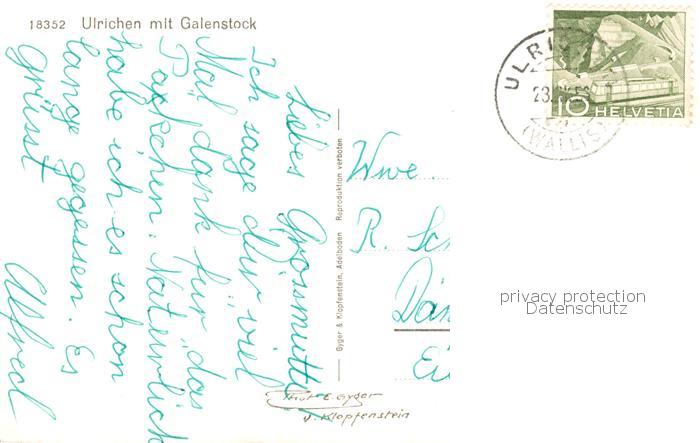 18352 Ulrichen mit Galenstock
Liebes Grossmutti
Ich sage dir viel
Mal dank für das
Natürlich
habe ich es schon
lange gegessen. Es
grüsst
Alfred
Gyger & Klopfenstein, Adelboden Reproduktion verboten
Phot. E. Gyger
J. Klopfenstein
Wwe.
R. Sc
Dän
HELVETIA
10
ULRI
23.
(WALLIS)
privacy protection
Datenschutz